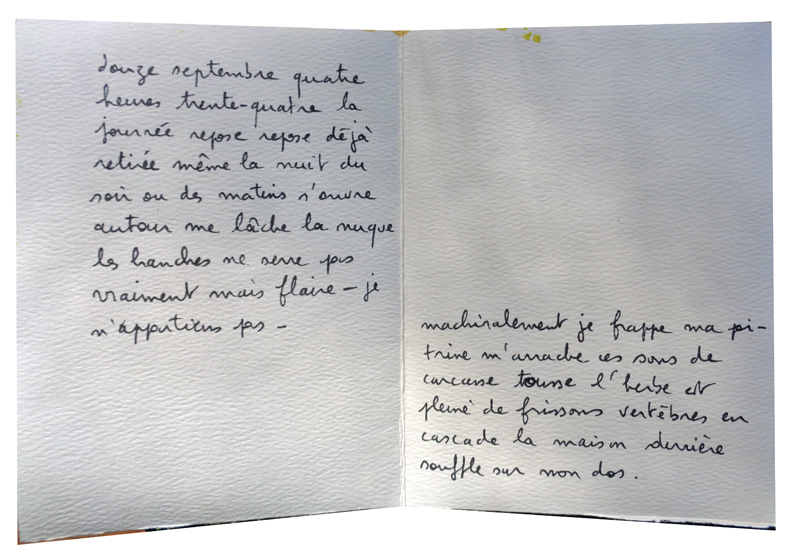 douze septembre quatre
heures trente-quatre la
journée repose repose déjà
retirée même la nuit du
soir ou des matins s'ouvre
autour me lâche la nuque
les hanches ne serre pas
vraiment mais flaire – je
n'appartiens pas –
machinalement je frappe ma poi-
trine m'arrache ces sons de
carcasse tousse l'herbe est
pleine de frissons vertèbres en
cascade la maison derrière
souffle sur mon dos.